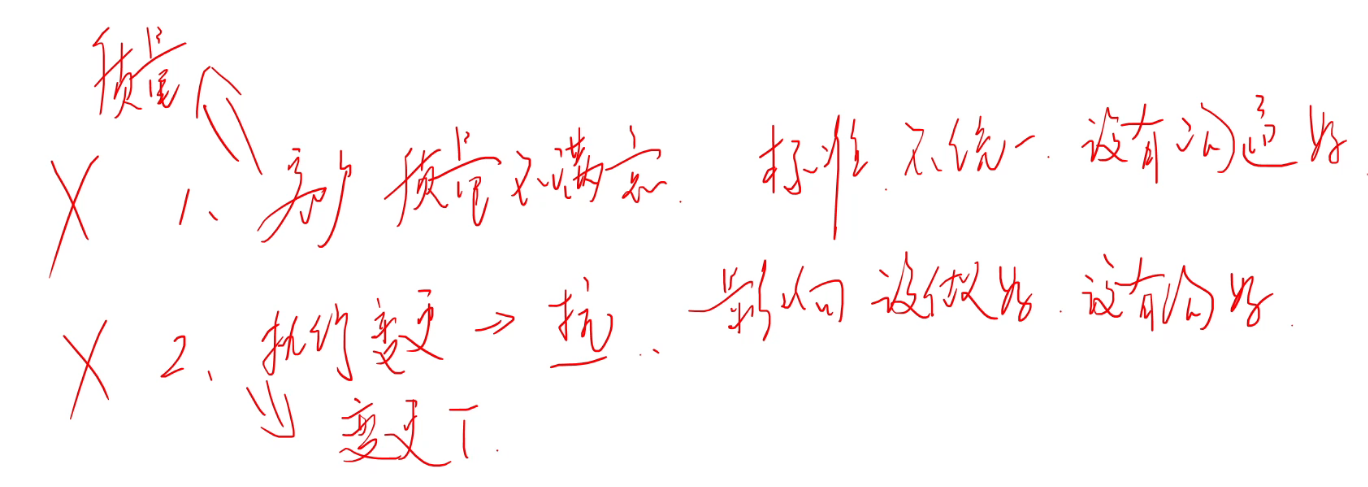 质量
X 1、客户质量不满意. 标准.不统一.没有沟通好
X 2、执行变更→抗.. 影响没做好.没有沟好.
变更T.